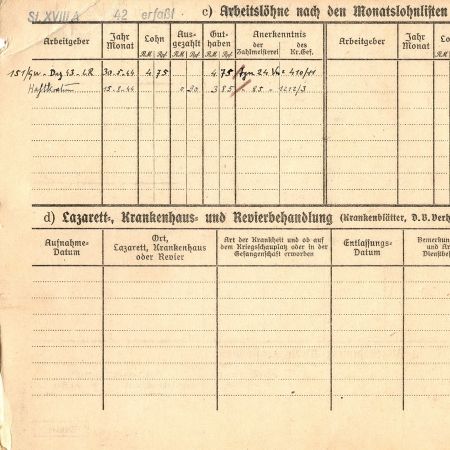 St. XVIII A 42 erfaßt. c) Arbeitslöhne nach den Monatslohnlisten
Arbeitgeber Jahr Monat Lohn RM Rpf Ausgezahlt RM Rpf Guthaben RM Rpf Anerkenntnis der Zahlmeisterei des Kr.Gef. Arbeitgeber Jahr Monat Lo
30.5.44 4 75 4 75
15.8.44 0 90 3 85 " 85 "
d) Lazarett-, Krankenhaus- und Revierbehandlung (Krankenblätter, D.B.Verh
Aufnahme-Datum Ort, Lazarett, Krankenhaus oder Revier Art der Krankheit und ob auf dem Kriegsschauplatz oder in der Gefangenschaft erworben Entlassungs-Datum Bemerkun und Ar Dienstbe